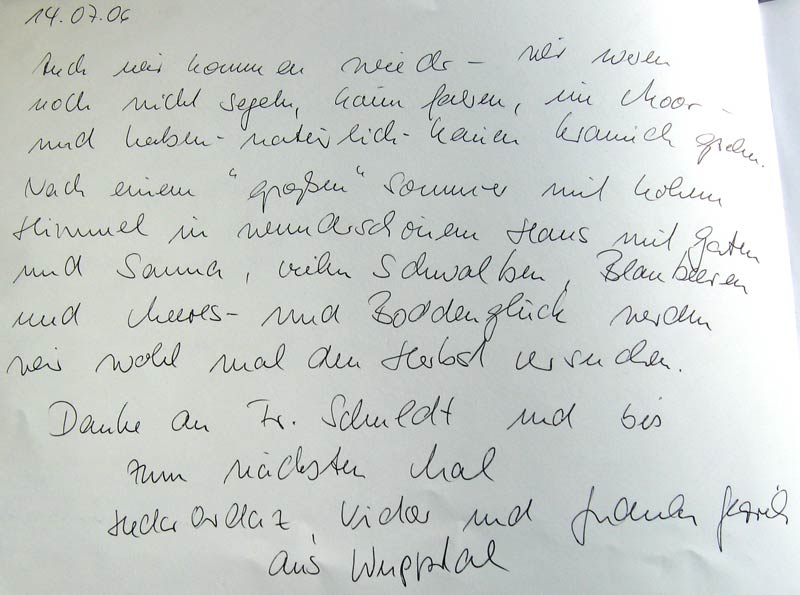 14.07.06
Auch wir kommen wieder - wir waren
noch nicht segeln, kaum fahren, im Moor -
und haben - natürlich - keinen Kranich gesehen.
Nach einem "großen" Sommer mit hohem
Himmel in wunderschönem Haus mit Garten
und Sauna, vielen Schwalben, Blaubeeren
und Meeres- und Boddenglück werden
wir wohl mal den Herbst versuchen.
Danke an Fr. Schuldt und bis
zum nächsten Mal
Victor und
aus Wuppertal